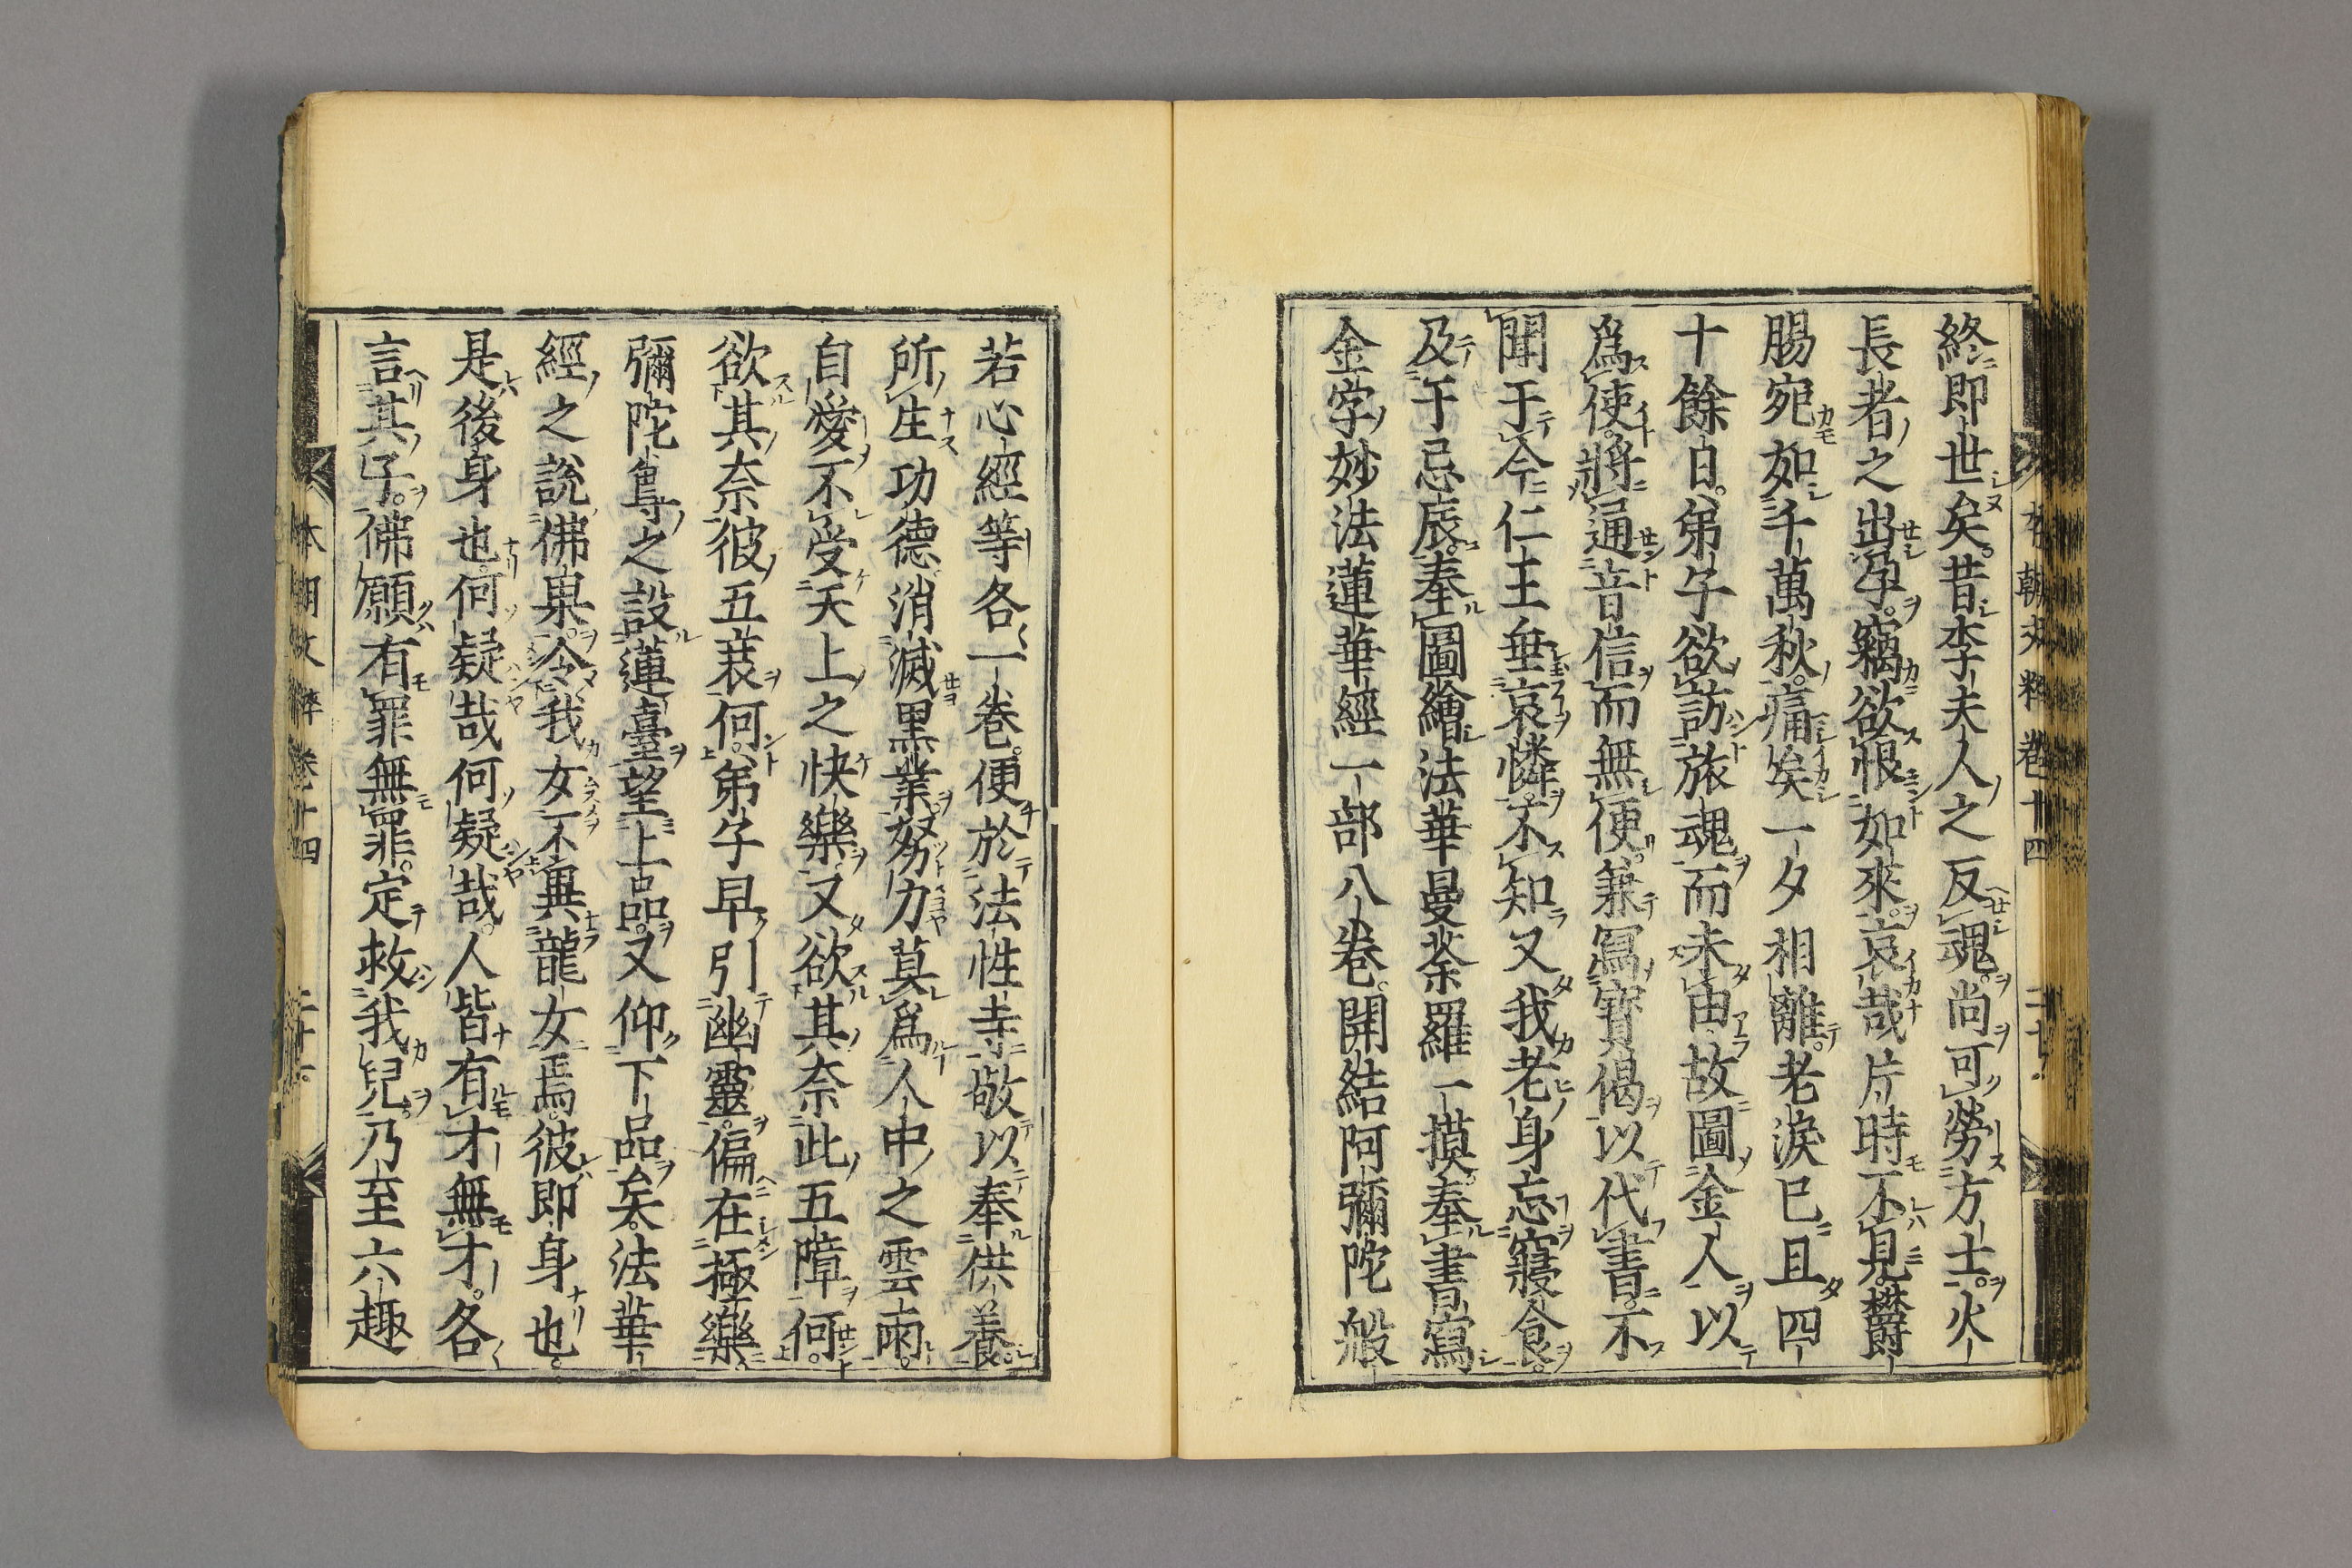 終即世矣。昔李夫人之反魂。尚可勞方士。火
長者之出孕。竊欲恨如來。哀哉片時不見。欝
腸宛如千萬秋。痛矣一夕相離。老淚已且四
十餘日。弟子欲訪旅魂而未由。故圖金人以
爲使。將通音信而無便。兼寫寶偈以代書。不
聞于今仁王垂哀憐。不知又我老身忘寢食。
及于忌辰。奉圖繪法華曼荼羅一摸。奉書寫
金字妙法蓮華經一部八卷。開結阿彌陀般
本朝文粹卷十四
若心經等各一卷。便於法性寺敬以奉供養。
所生功德消滅黒業。努力莫爲人中之雲雨。
自愛不受天上之快樂。又欲其奈此五障何。
欲其奈彼五衰何。弟子早引幽靈。偏在極樂
彌陀尊之設蓮臺。望上品。又仰下品矣。法華
經之説佛果。令我女不異龍女焉。彼即身也。
是後身也。何疑哉何疑哉。人皆有才無才。各
言其子。佛願有罪無罪。定救我兒。乃至六趣
本朝文粹卷十四